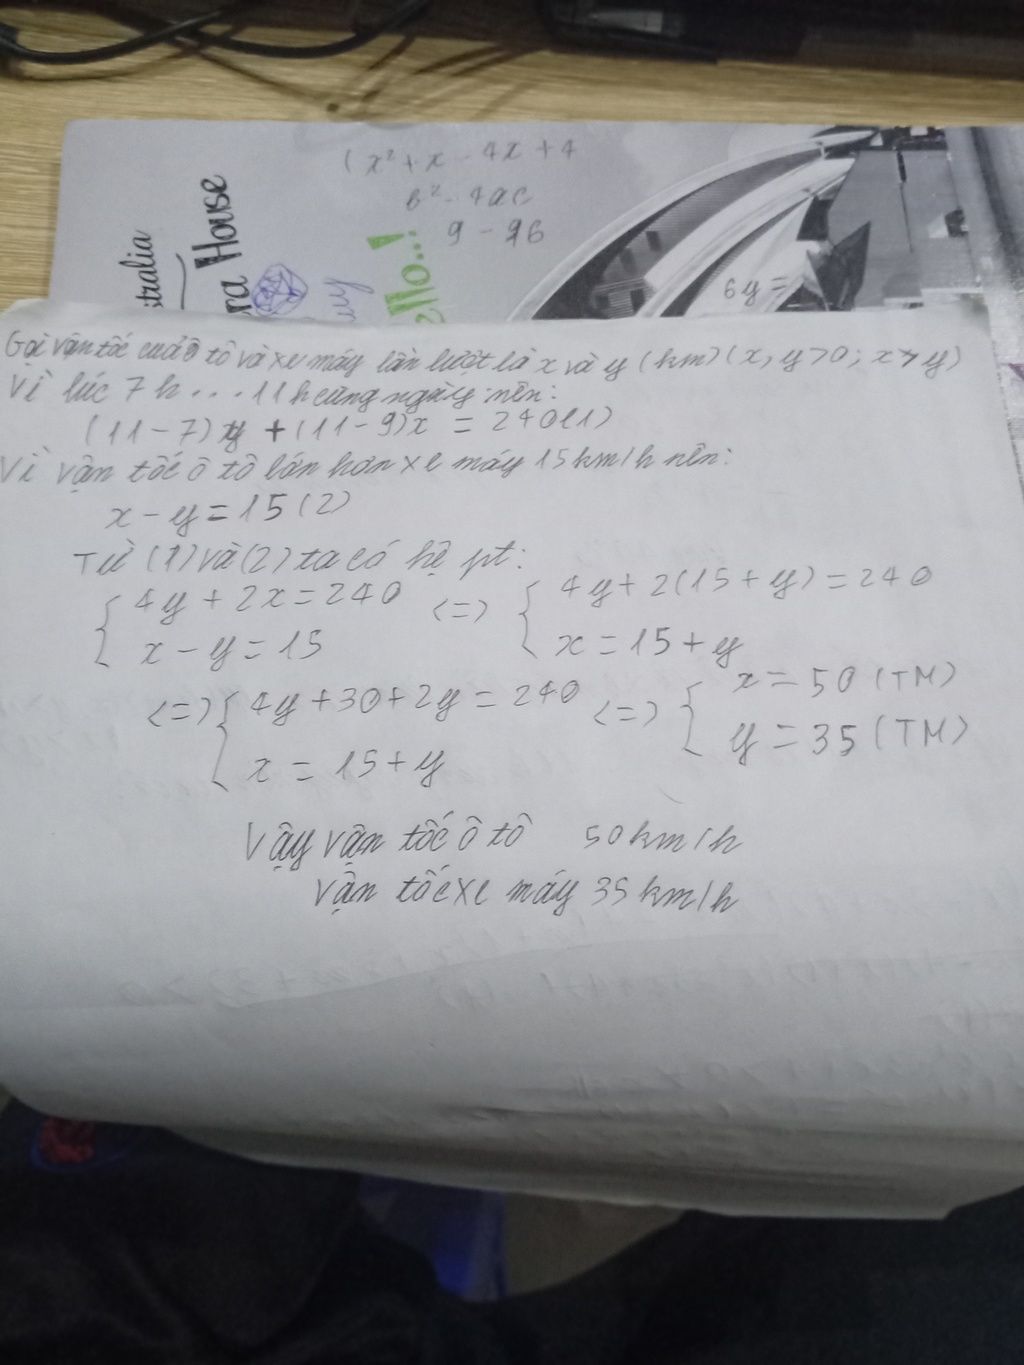 (x² + x - 4x + 4
b² - 4ac
9 - 16
6y =
House
Gọi vận tốc của ô tô và xe máy lần lượt là x và y (km) (x, y > 0; x > y)
Vì lúc 7h . . . 11h cùng ngày nên:
(11-7)y + (11-9)x = 240(1)
Vì vận tốc ô tô lớn hơn xe máy 15km/h nên:
x - y = 15 (2)
Từ (1) và (2) ta có hệ pt:
{ 4y + 2x = 240 <=> { 4y + 2(15 + y) = 240
x - y = 15 x = 15 + y
<=> { 4y + 30 + 2y = 240 <=> { x = 50 (TM)
x = 15 + y y = 35 (TM)
Vậy vận tốc ô tô 50km/h
vận tốc xe máy 35km/h